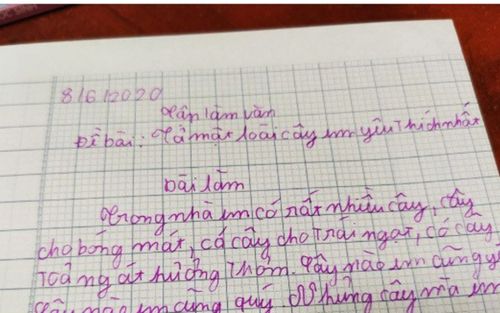 8/6/2020
Tập làm văn
Đề bài: Tả một loài cây em yêu thích nhất
Bài làm
Trong nhà em có rất nhiều cây, cây
cho bóng mát, có cây cho trái ngọt, có cây
toả ngát hương thơm. Cây nào em cũng y
cây nào em cũng quý. Nhưng cây mà em